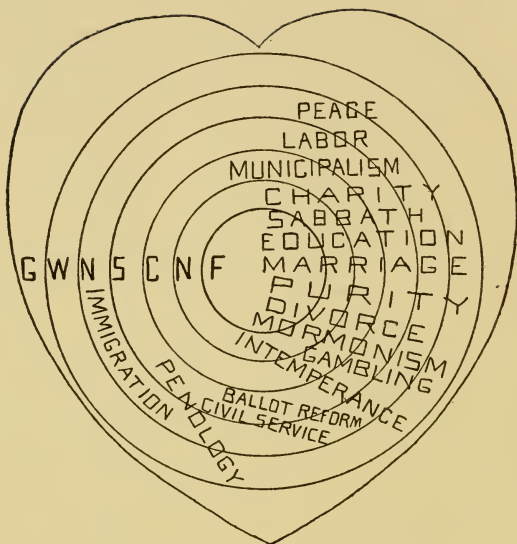 PEACE
LABOR
MUNICIPALISM
CHARITY
SABBATH
EDUCATION
G W N S C N F MARRIAGE
PURITY
DIVORCE
MORMONISM
GAMBLING
INTEMPERANCE
BALLOT REFORM
CIVIL SERVICE
PENOLOGY
IMMIGRATION